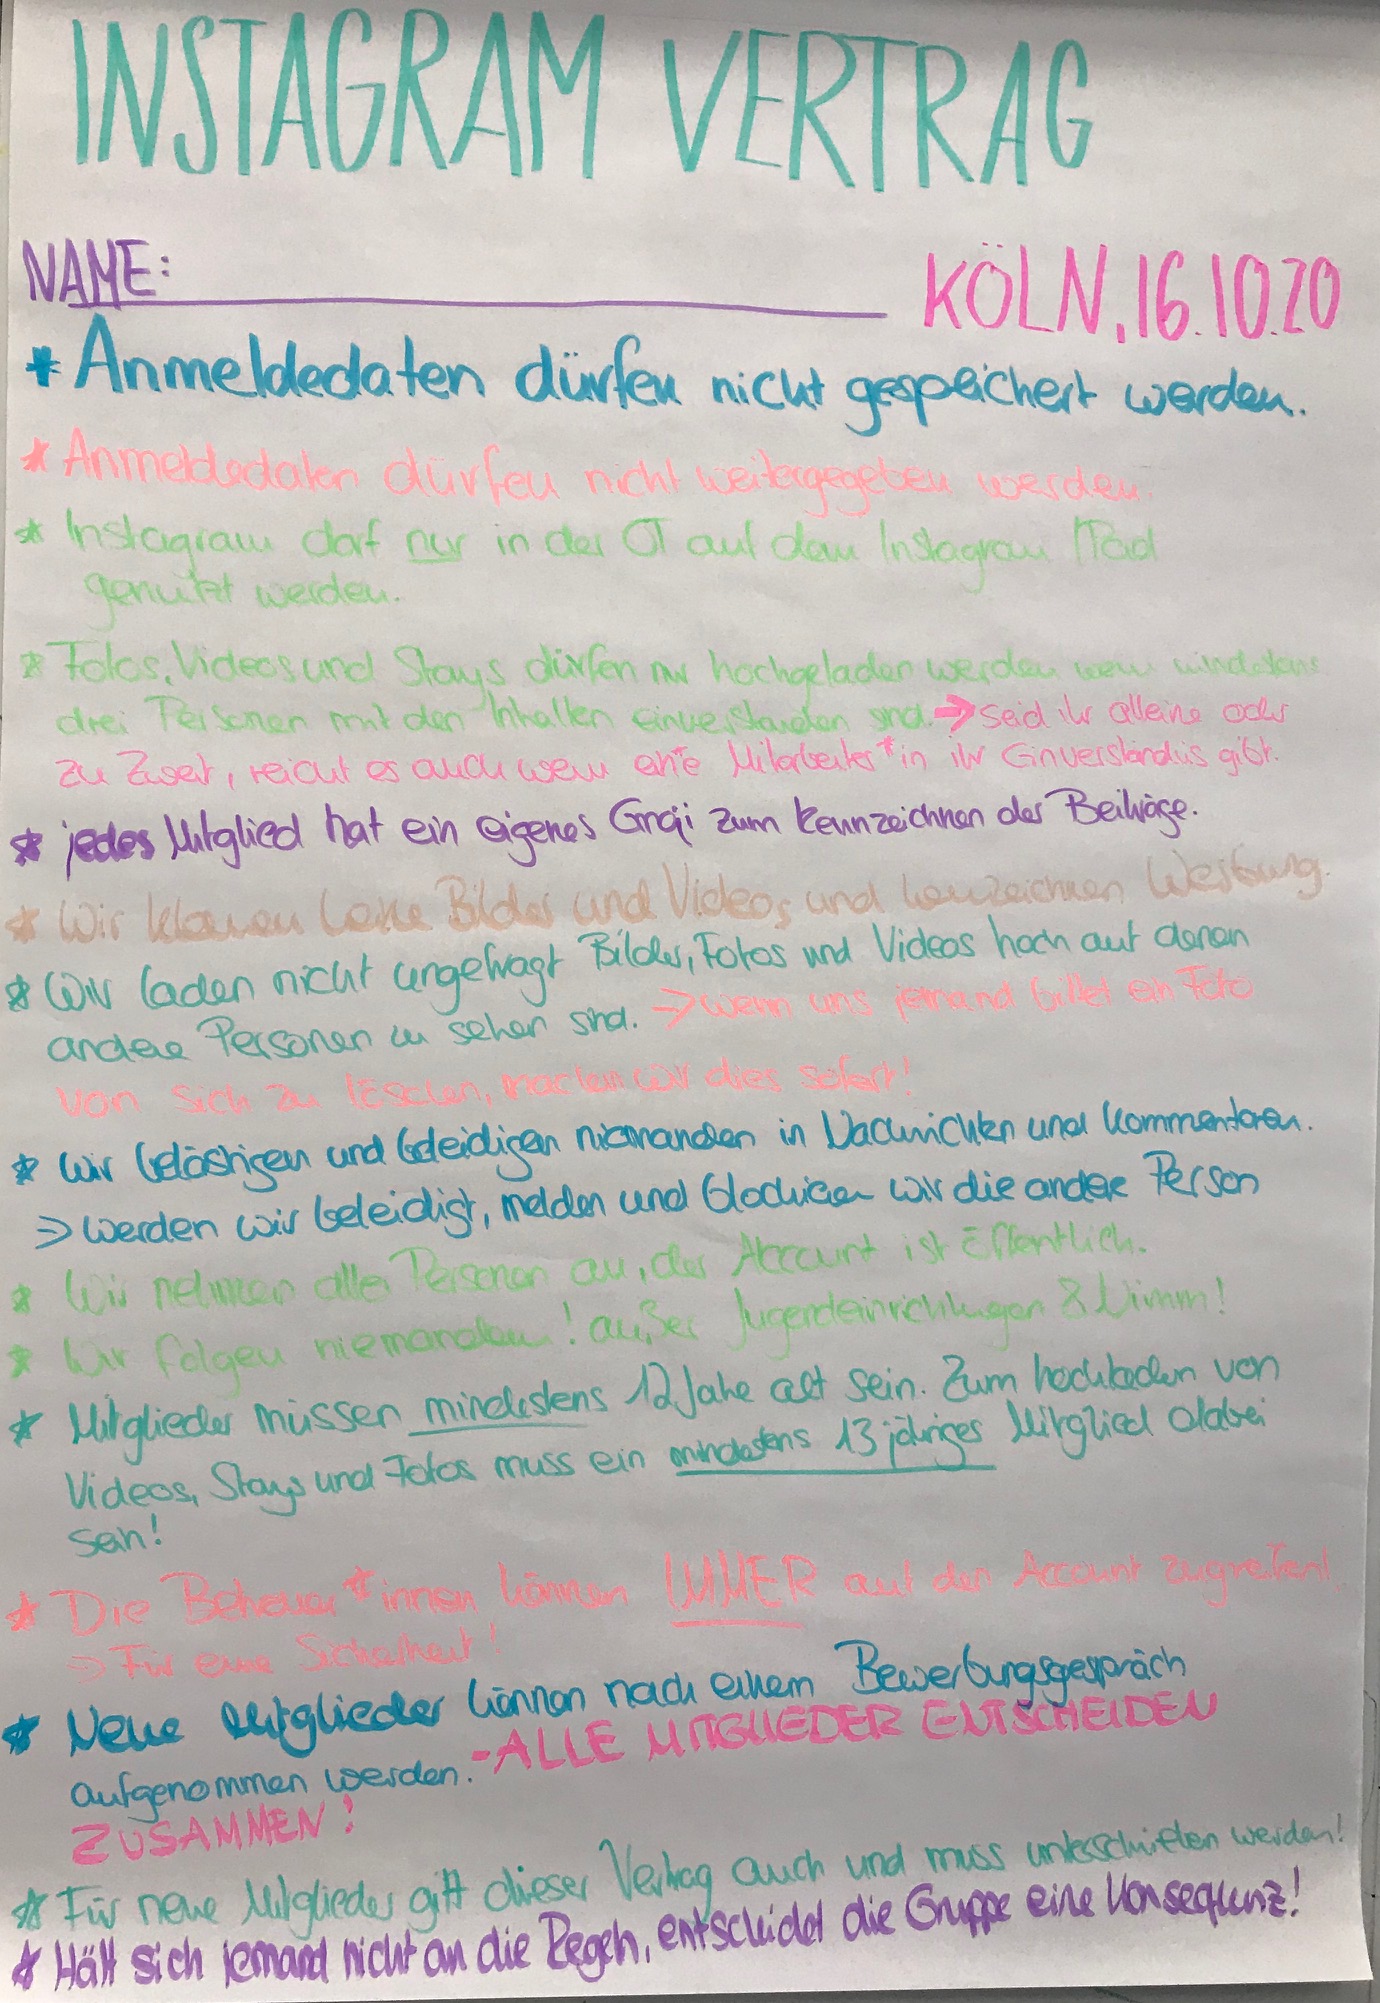 INSTAGRAM VERTRAG
NAME: KÖLN, 16.10.20
* Anmeldedaten dürfen nicht gespeichert werden.
* Anmeldedaten dürfen nicht weitergegeben werden.
* Instagram darf nur in der OT auf dem Instagram IPad
genutzt werden.
* Fotos, Videos und Storys dürfen nur hochgeladen werden wenn mindestens
drei Personen mit den Inhalten einverstanden sind. → seid ihr alleine oder
zu Zweit, reicht es auch wenn ein*e Mitarbeiter*in ihr Einverständnis gibt.
* jedes Mitglied hat ein eigenes Emoji zum kennzeichnen der Beiträge.
* Wir klauen keine Bilder und Videos und kennzeichnen Werbung.
* Wir laden nicht ungefragt Bilder, Fotos und Videos hoch auf denen
andere Personen zu sehen sind. → wenn uns jemand bittet ein Foto
von sich zu löschen, machen wir dies sofort!
* Wir belästigen und beleidigen niemanden in Nachrichten und Kommentaren.
⇒ werden wir beleidigt, melden und blockieren wir die andere Person
* Wir nehmen alle Personen an, der Account ist Öffentlich.
* Wir folgen niemandem! außer Jugendeinrichtungen & Nimm!
* Mitglieder müssen mindestens 12 Jahre alt sein. Zum hochladen von
Videos, Storys und Fotos muss ein mindestens 13 jähriges Mitglied dabei
sein!
* Die Betreuer*innen können IMMER auf den Account zugreifen!
⇒ Für eure Sicherheit!
* Neue Mitglieder können nach einem Bewerbungsgespräch
aufgenommen werden. - ALLE MITGLIEDER ENTSCHEIDEN
ZUSAMMEN!
* Für neue Mitglieder gilt dieser Vertrag auch und muss unterschrieben werden!
* Hält sich jemand nicht an die Regeln, entscheidet die Gruppe eine Konsequenz!